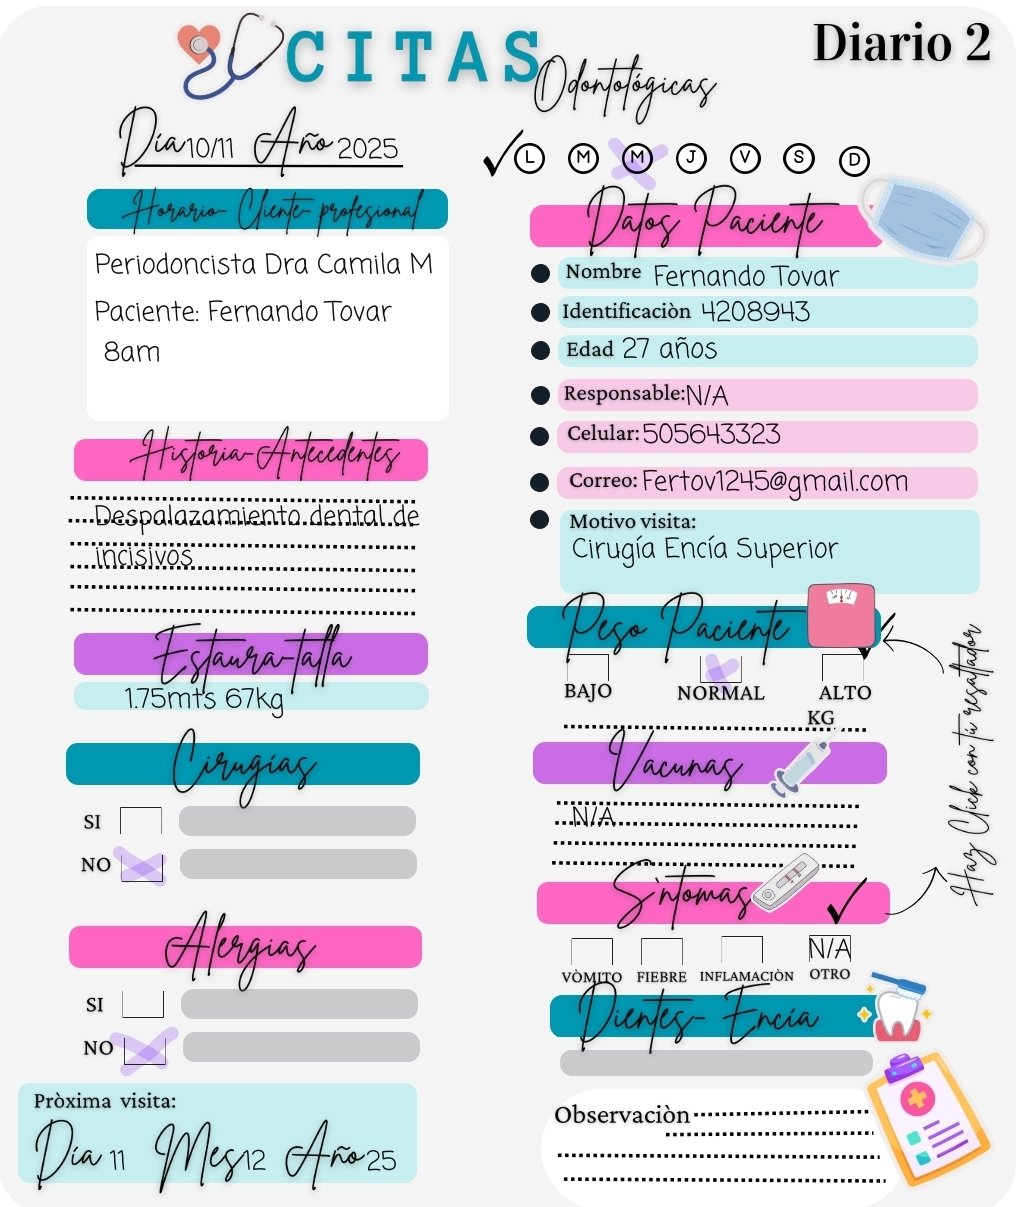 CITAS
Odontológicas
Diario 2
Día 10/11 Año 2025
L M M J V S D
Horario- Cliente- profesional
Periodoncista Dra Camila M
Paciente: Fernando Tovar
8am
Historia-Antecedentes
Despalazamiento dental de
incisivos
Estaura-talla
1.75mts 67kg
Cirugías
SI
NO
Alergias
SI
NO
Pròxima visita:
Día 11 Mes 12 Año 25
Datos Paciente
Nombre Fernando Tovar
Identificaciòn 4208943
Edad 27 años
Responsable: N/A
Celular: 505643323
Correo: Fertov1245@gmail.com
Motivo visita:
Cirugía Encía Superior
Peso Paciente
BAJO NORMAL ALTO
KG
Vacunas
N/A
Sìntomas
N/A
VÒMITO FIEBRE INFLAMACIÒN OTRO
Dientes- Encía
Observaciòn
Haz Click con tú resaltador